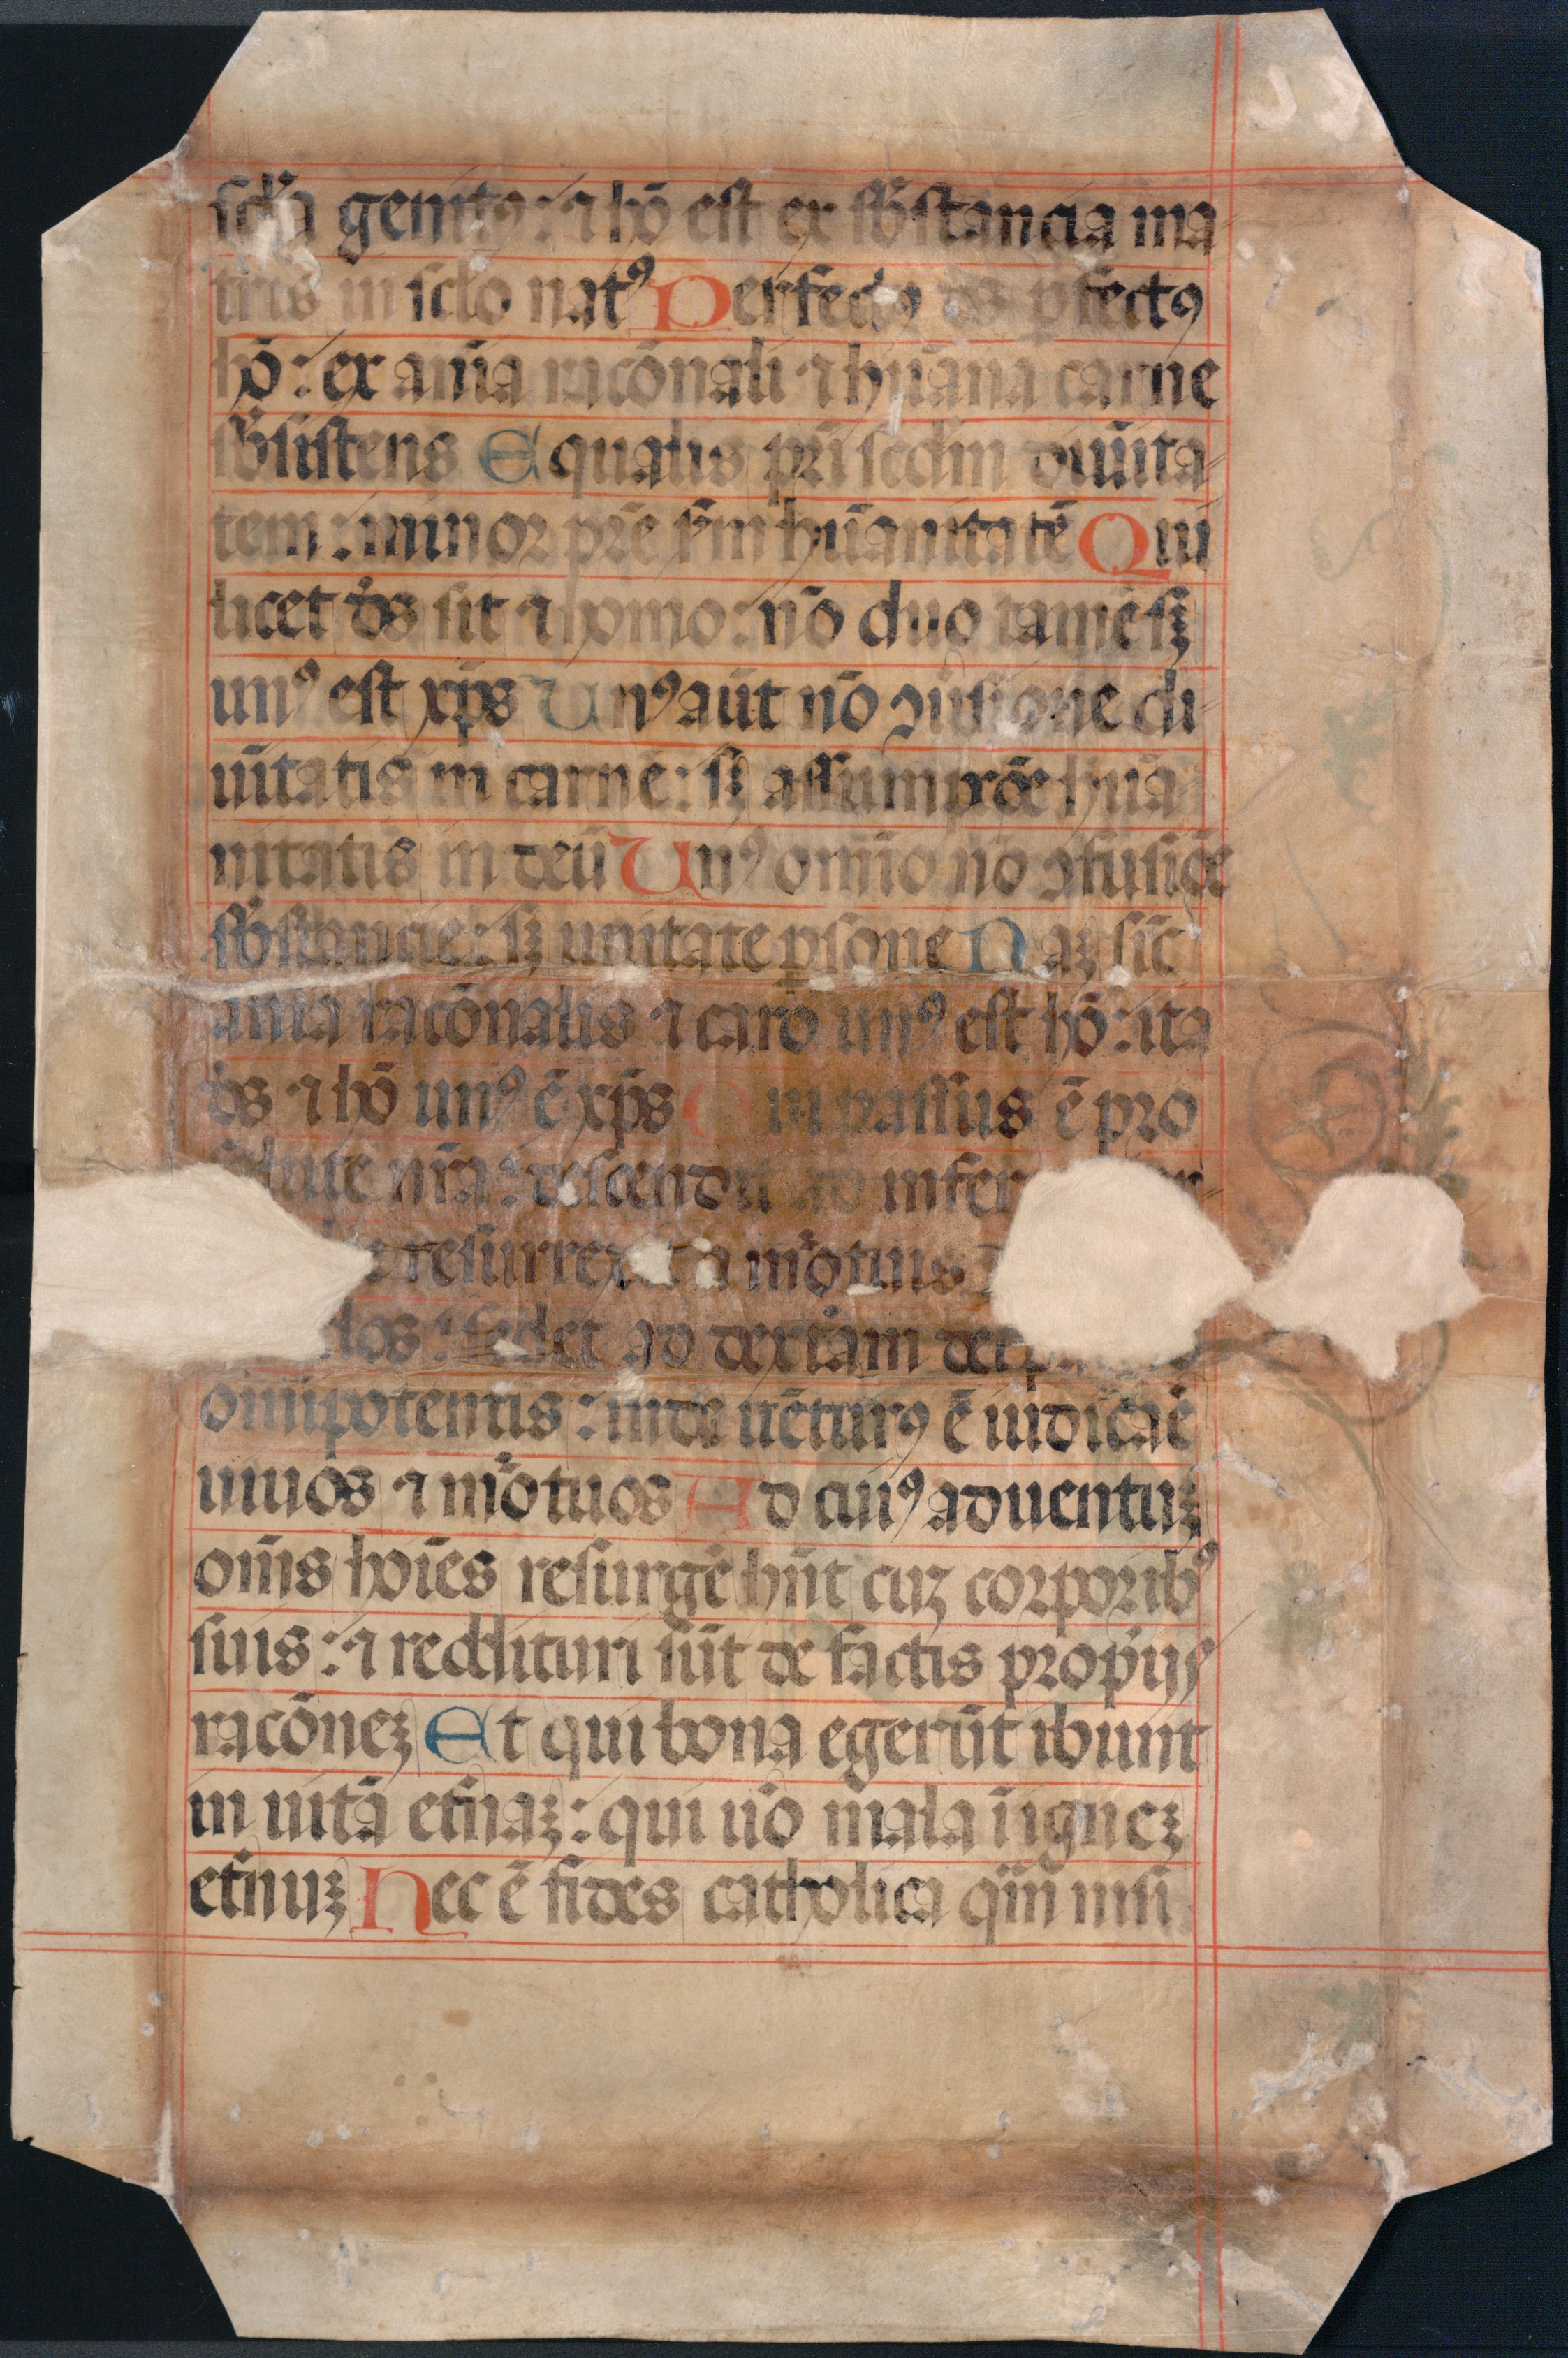 scl̄a genitꝰ : ⁊ hō est ex sb̄stancia ma
tris in sclō natꝰ Perfectꝰ ds̄ ꝑfectꝰ
hō : ex anīa racōnali ⁊ hūana carne
sb̄sistens Equalis pr̄i scdm̄ diuīta
tem : minor pr̄e sm̄ hūanitatē Qui
licet ds̄ sit ⁊ homo : nō duo tamē sꝫ
unꝰ est xp̄s Unꝰ aūt nō ꝯuersione di
uītatis in carnē : sꝫ assumpcōe hūa
nitatis in deū Unꝰ omīo nō ꝯfusiōe
sb̄stancie : sꝫ unitate ꝑsone Naꝫ sic̄
anīa racōnalis ⁊ caro unꝰ est hō : ita
ds̄ ⁊ hō unꝰ ē xp̄s Qui passus ē pro
lute nr̄a : descendit ad infer
resurrexit a mōrtuis
los : sedet ad dextram dei p
omīpotentis : inde uētur9 ē iudicaē
uiuos ⁊ mōrtuos Ad cuiꝰ aduentuꝫ
om̄s hoīes resurgē hn̄t cuꝫ corporibꝰ
suis : ⁊ reddituri sūt de factis propijs
racōneꝫ Et qui bona egerūt ibunt
in uitā etn̄aꝫ : qui uō mala ī igneꝫ
etn̄uꝫ Hec ē fides catholica qm̄ nisi